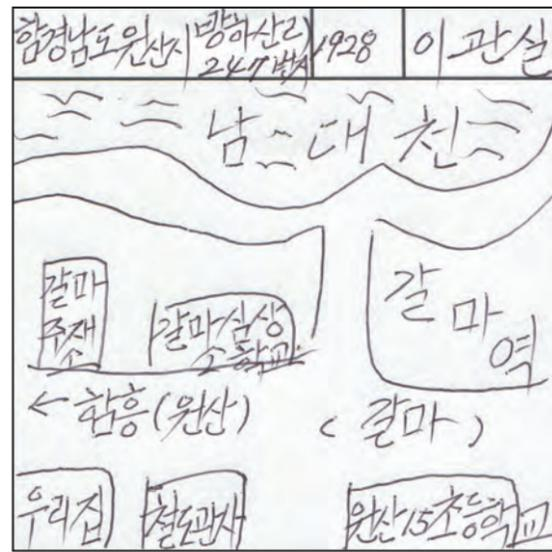 함경남도원산시
방하산리
247번지
1928
이관실
남대천
갈마
주재
소
갈마심상
소학교
갈마
역
← 함흥(원산)
(갈마)
우리집
철도관사
원산15초등학교